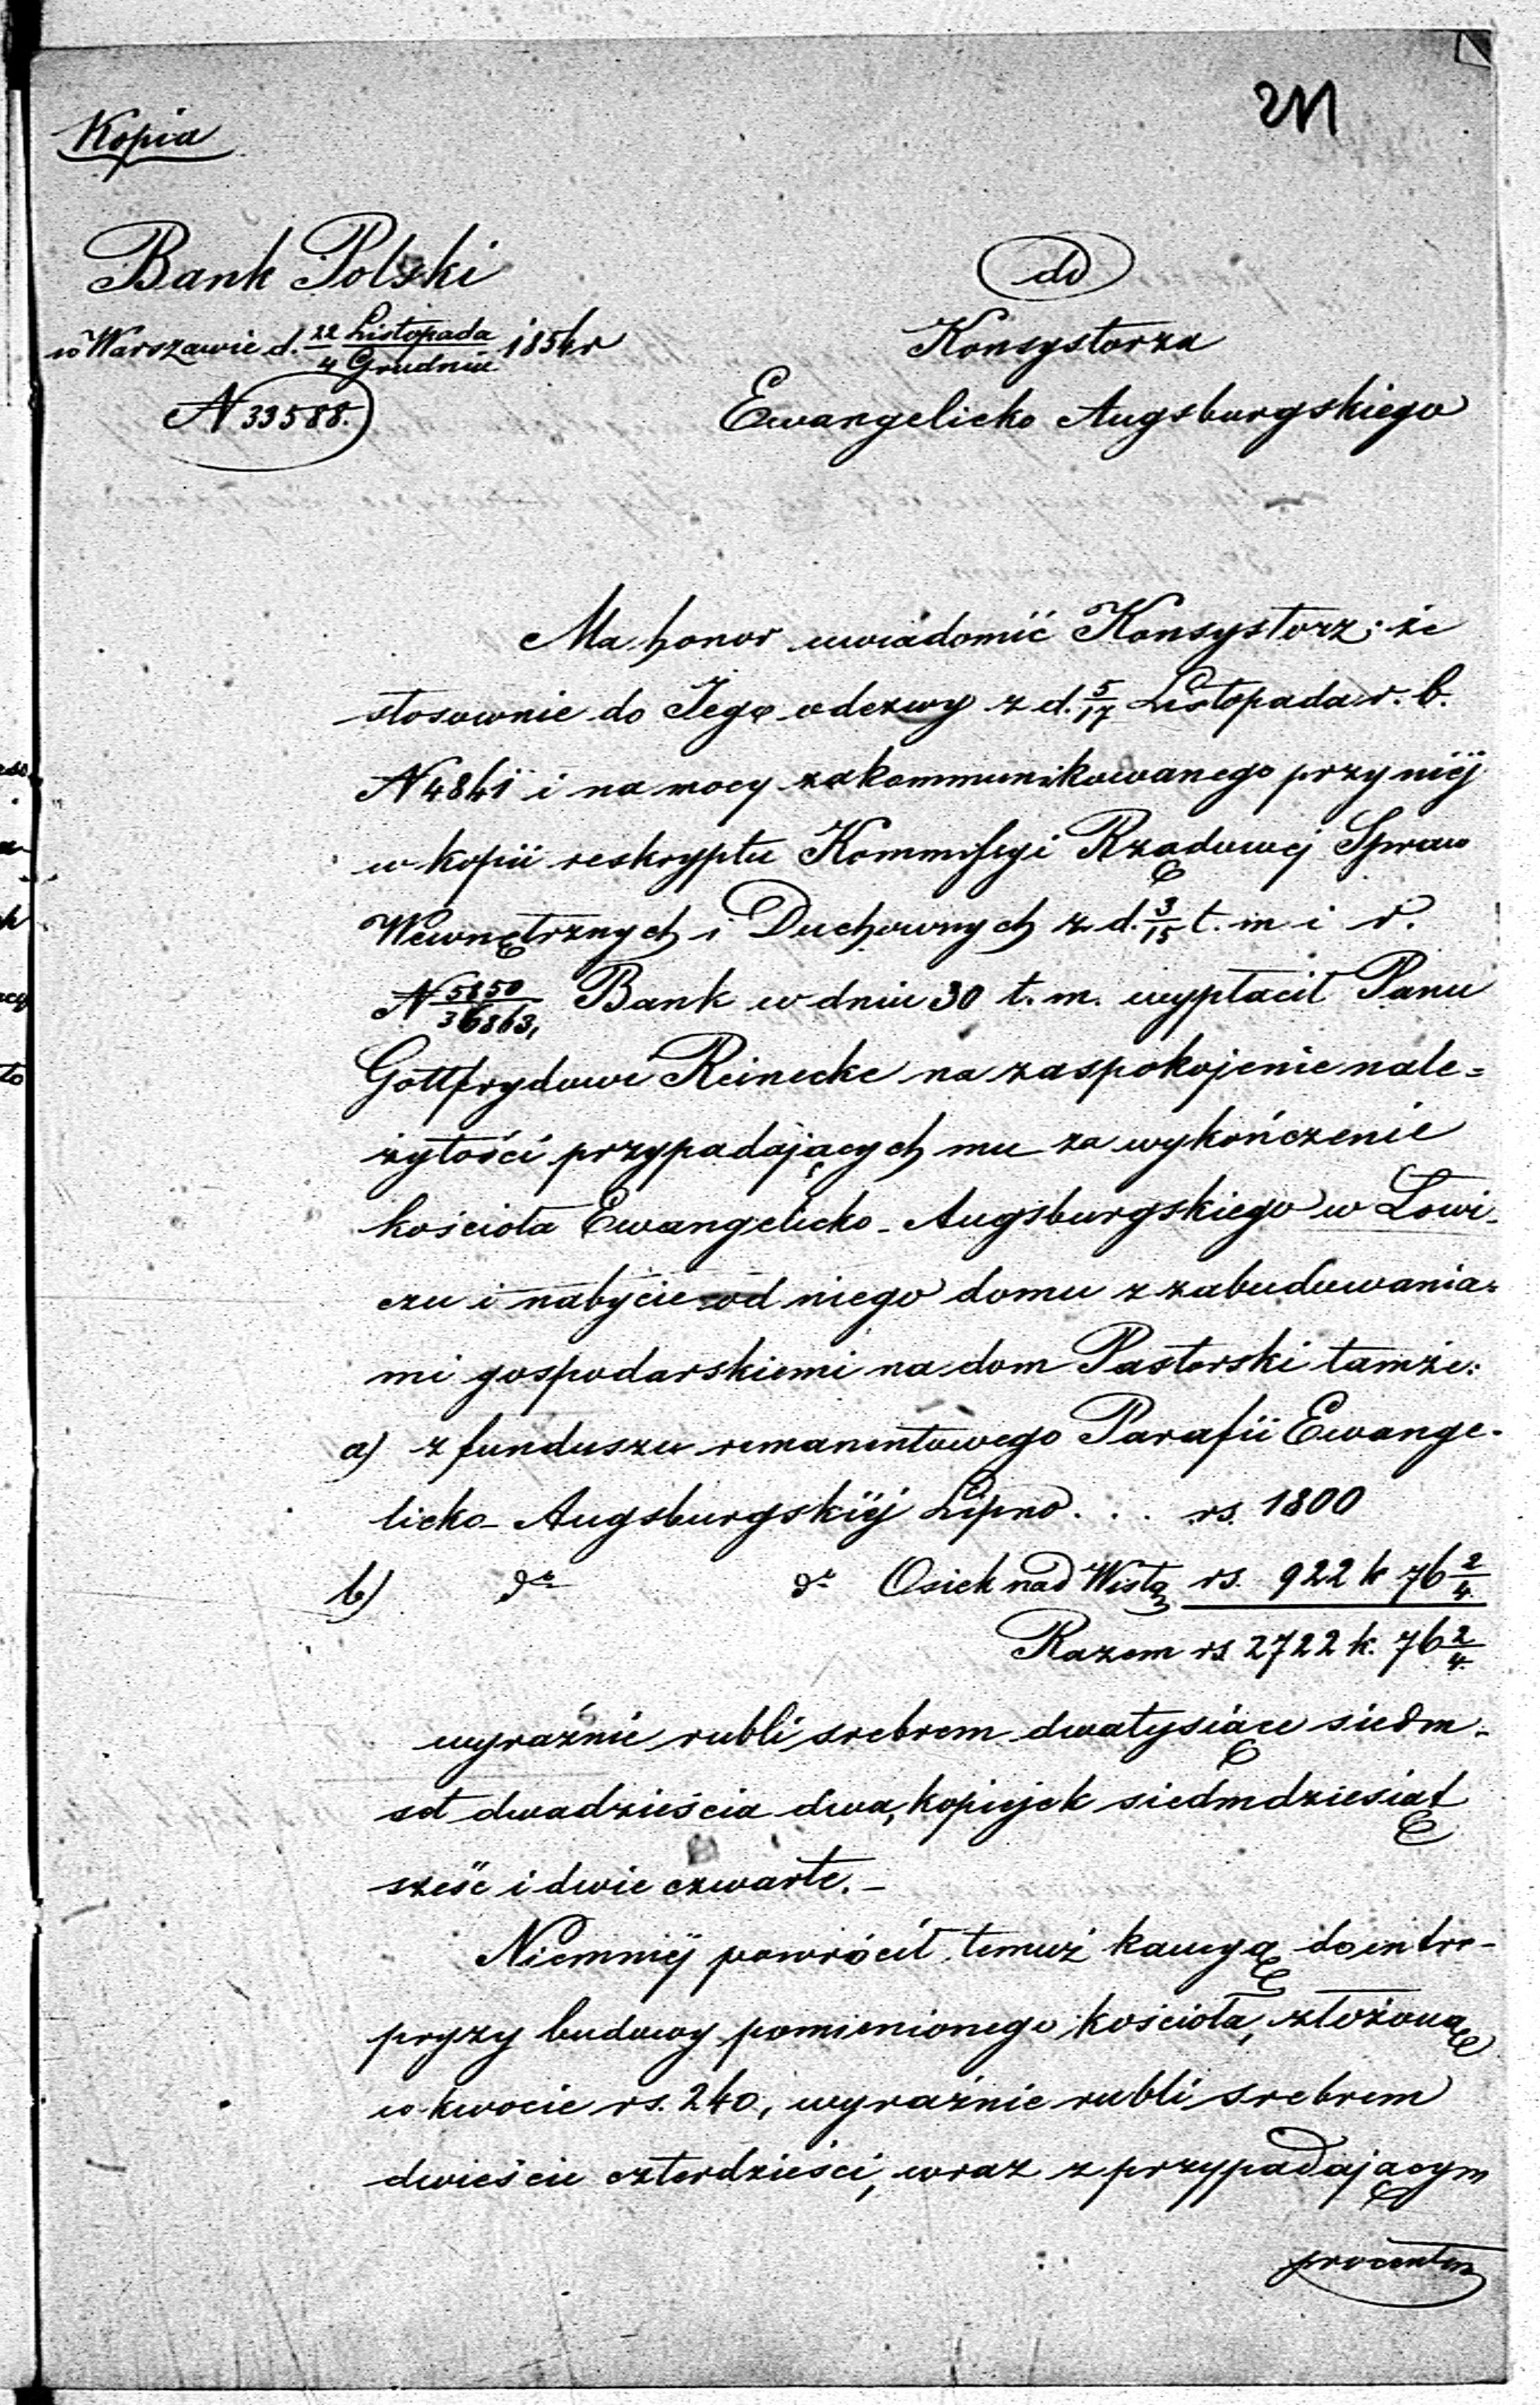 211
Kopia
Bank Polski
w Warszawie d. 22 Listopada / 4 Grudnia 1856 r
N 33588.
do
Konsystorza
Ewangelicko Augsburgskiego
Ma honor uwiadomić Konsystorz, że
stosownie do Jego odezwy z d. 5/17 Listopada r. b.
N 4861 i na mocy zakommunikowanego przy niéj
w kopii reskryptu Kommissyi Rządowej Spraw
Wewnętrznych i Duchownych z d. 3/15 t. m i r.
N 5850/36863, Bank w dniu 30 t. m. wypłacił Panu
Gottfrydowi Reinecke na zaspokojenie nale=
żytości przypadających mu za wykończenie
kościoła Ewangelicko-Augsburgskiego w Łowi-
czu i nabycie od niego domu z zabudowania=
mi gospodarskiemi na dom Pastorski tamże:
a) z funduszu remanentowego Parafii Ewange-
licko-Augsburgskiéj Lipno . . . rs. 1800
b) do do Osiek nad Wisłą rs. 922 k 76 2/4
Razem rs 2722 k. 76 2/4
wyraźnie rubli srebrem dwatysiące siedm-
set dwadzieścia dwa, kopiejek siedmdziesiąt
sześć i dwie czwarte.-
Niemniéj powrócił temuż kaucyą do entre-
pryzy budowy pomienionego kościoła, złożoną
w kwocie rs. 240, wyraźnie rubli srebrem
dwieście czterdzieści, wraz z przypadającym
procentem